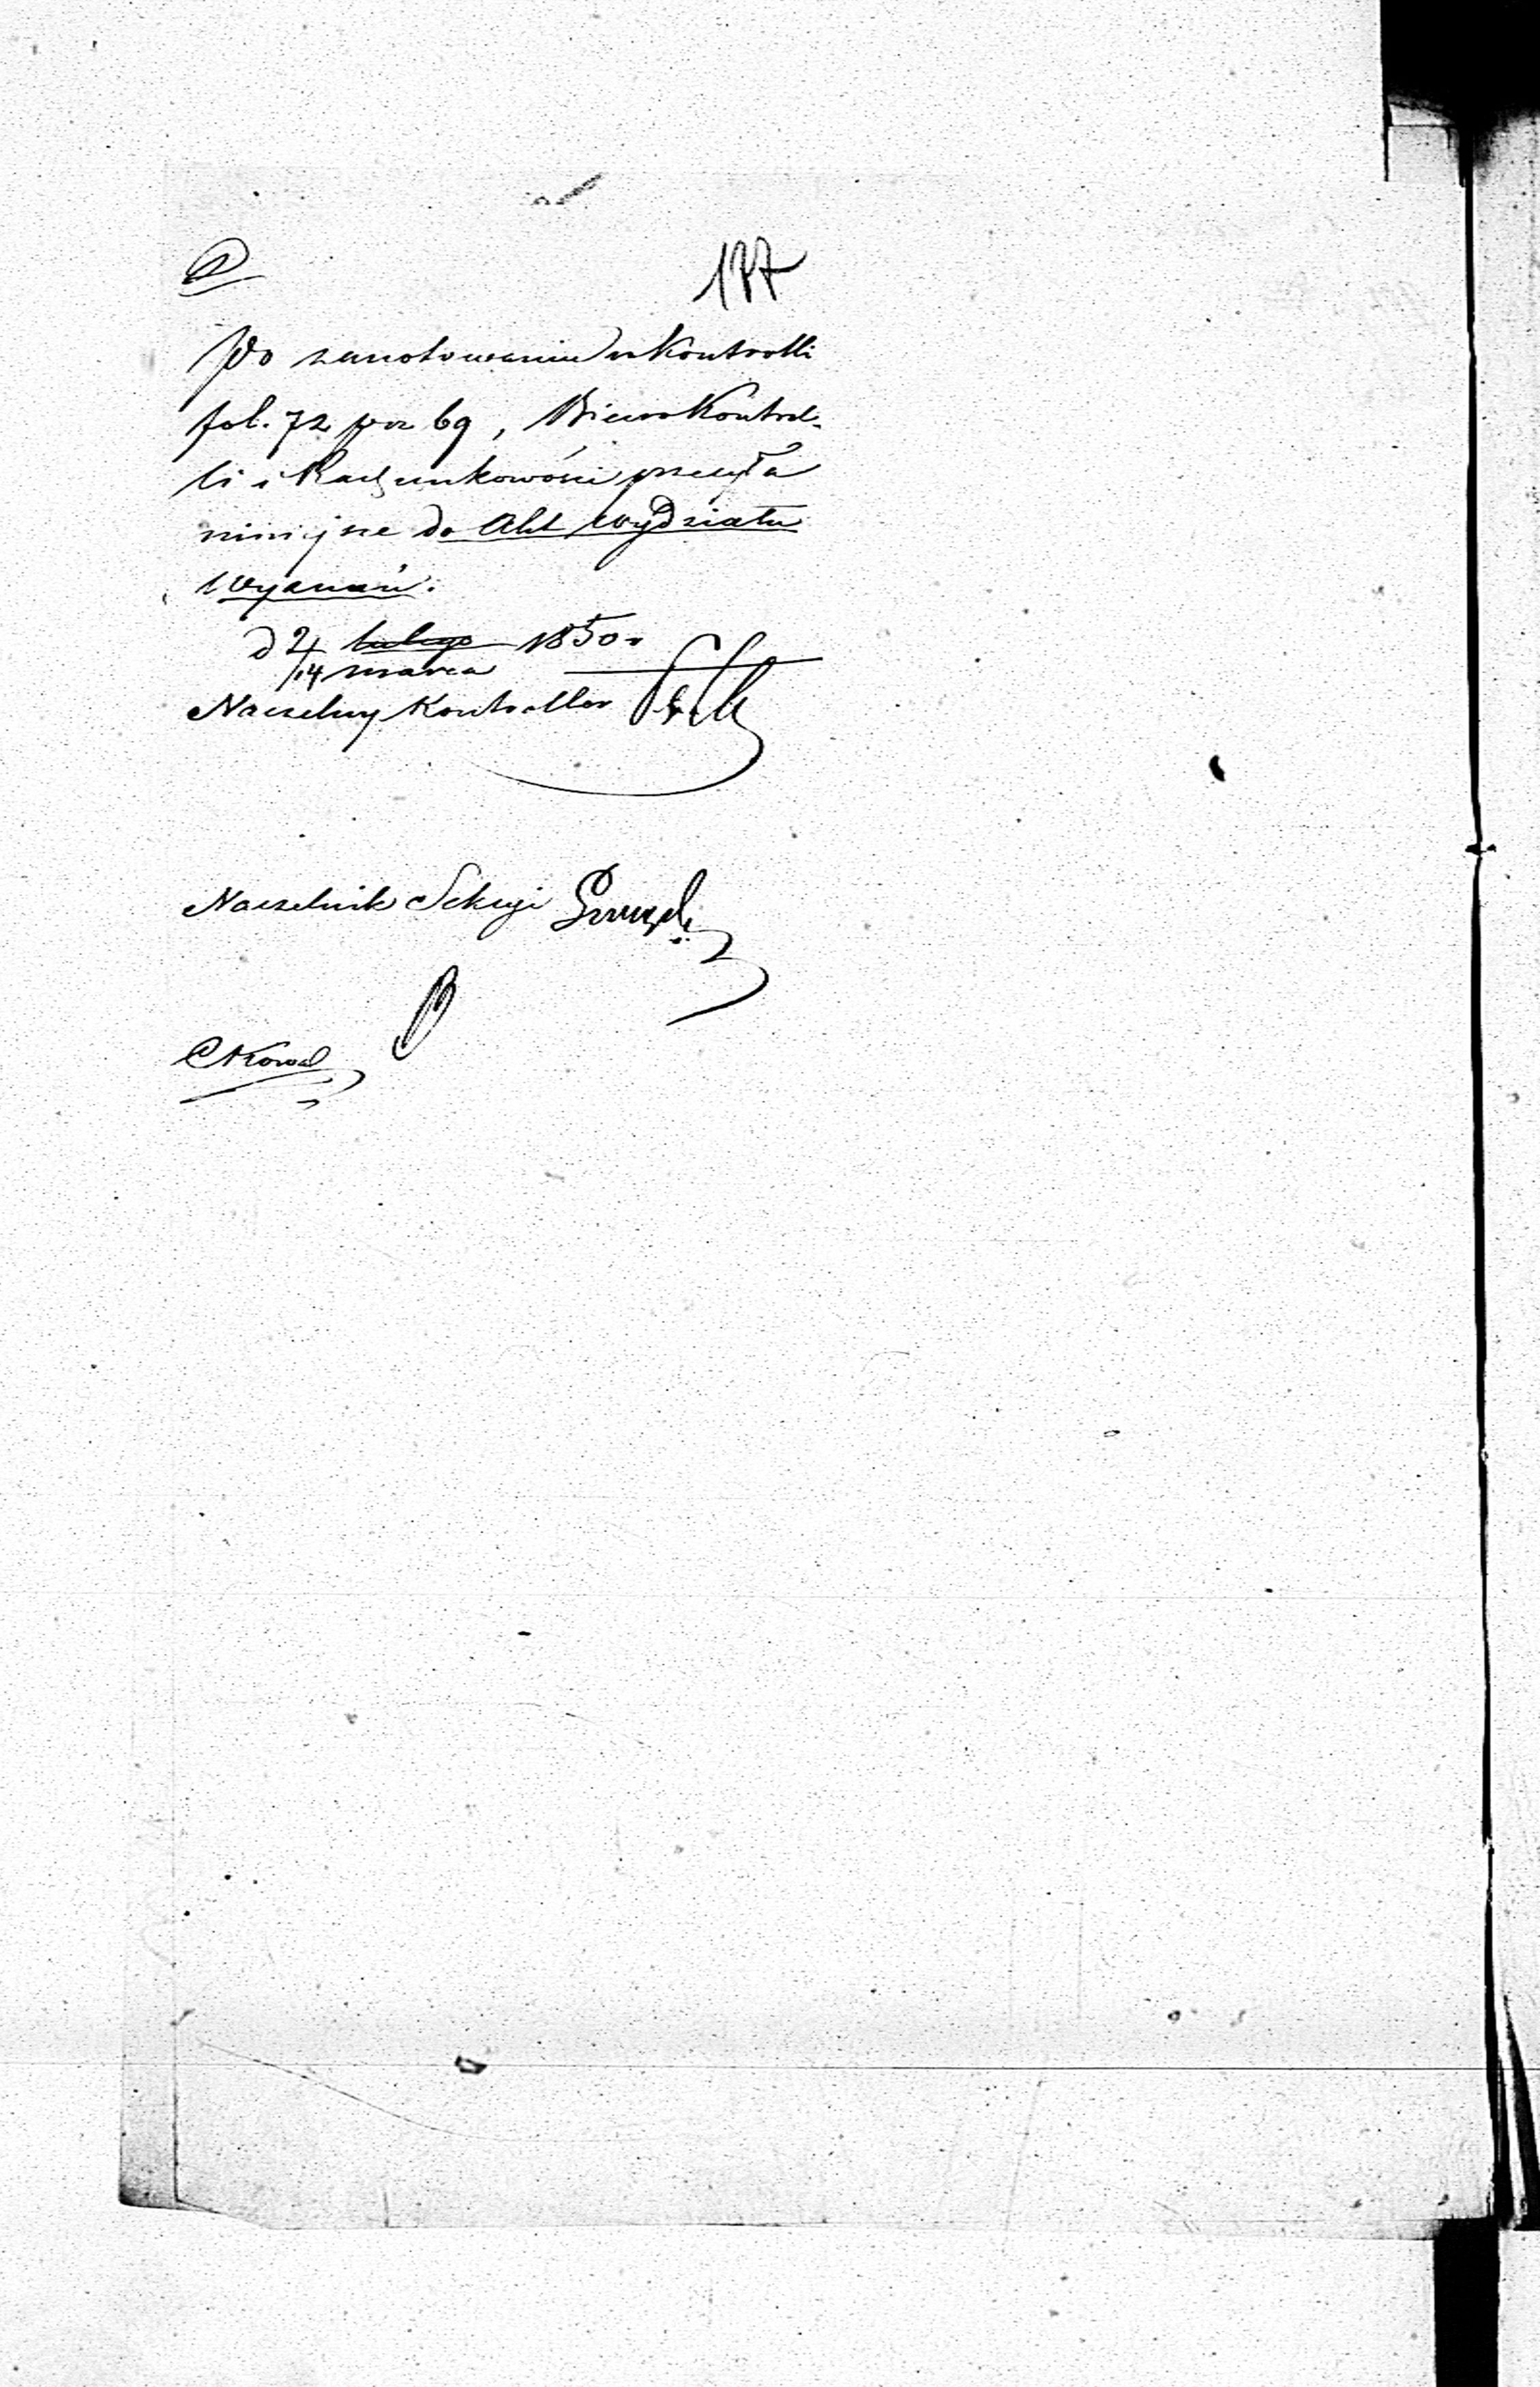 177
Po zanotowaniu w Kontrolli
fol. 72 poz 69, Biuro Kontrol-
li i Rachunkowości przesyła
niniejsze do Akt Wydziału
Wyznań.
d 2/14 lutego marca 1850 r
Naczelny Kontroller
Naczelnik Sekcji